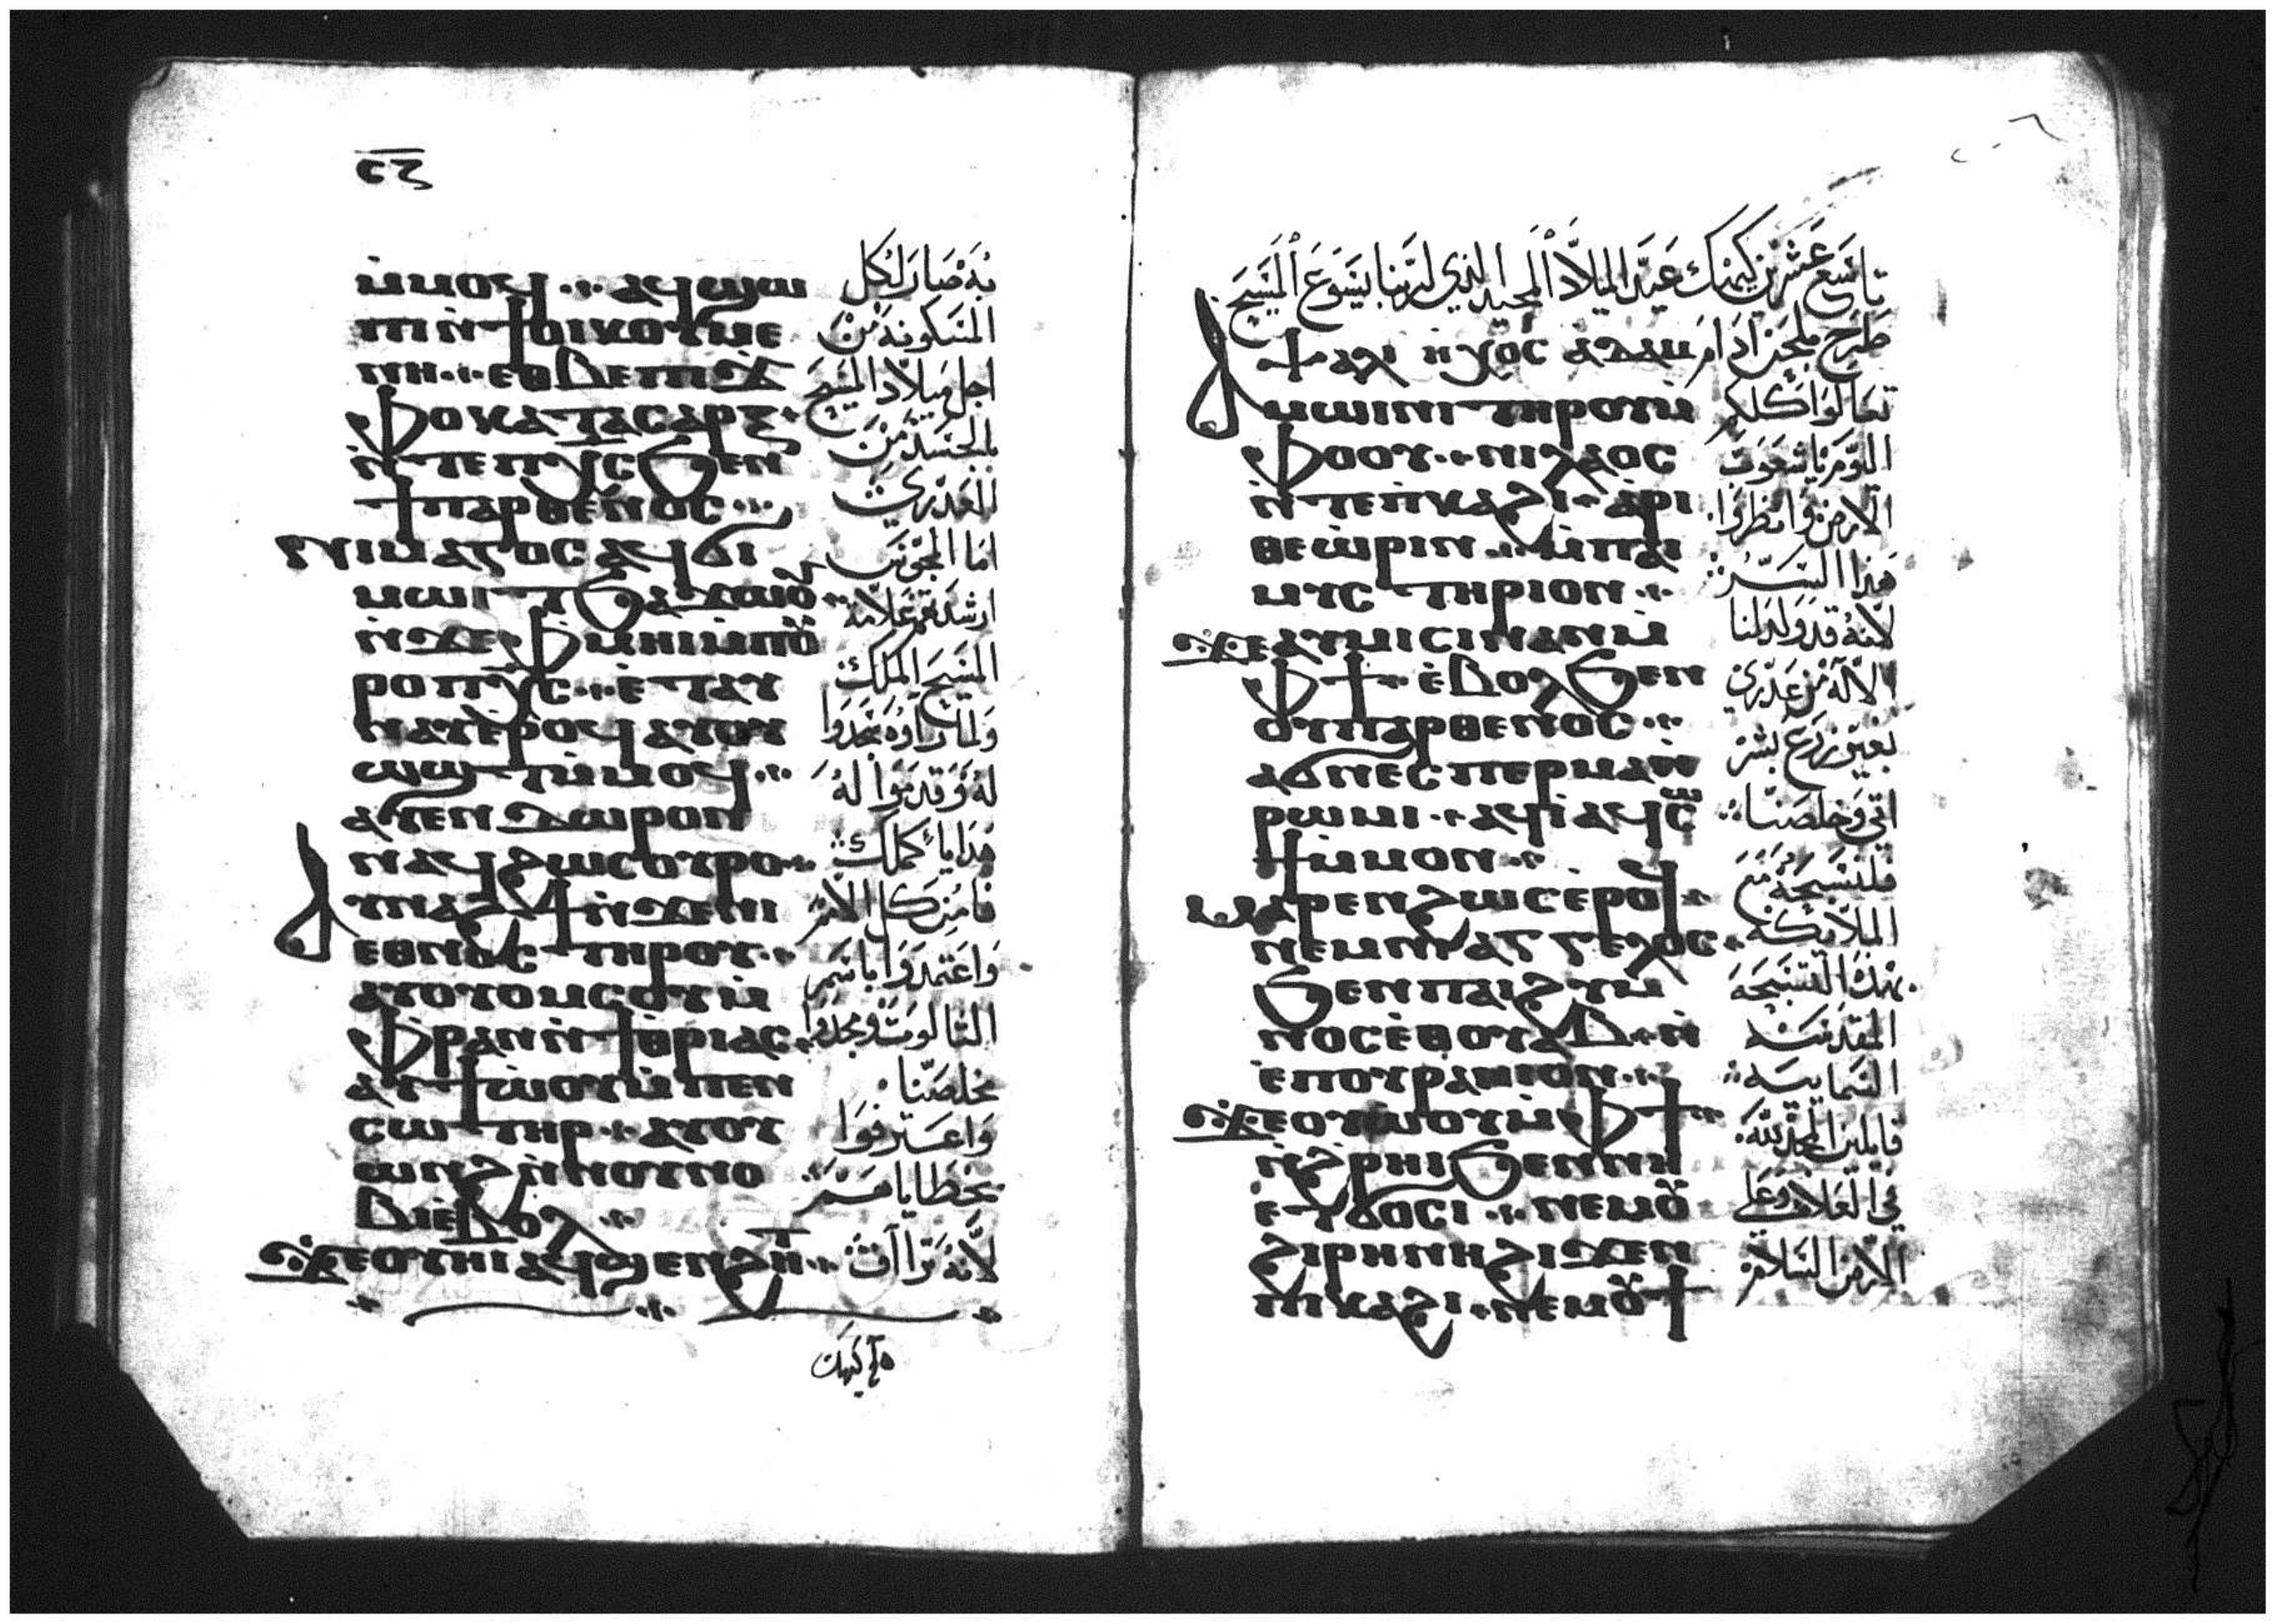 ⲥⲍ
ⲙ̀ⲙⲟϥ ⁖ ⲁϥϣⲱ
ⲡⲓⲛ̀ϯⲟⲓⲕⲟⲩⲙⲉ
ⲛⲏ ⁖ ⲉⲑⲃⲉⲡⲓϫ
ⲫⲟⲕⲁⲧⲁⲥⲁⲣⲝ
ⲛ̀ⲧⲉⲡⲭ̅ⲥ̅ϧⲉⲛ
ϯⲡⲁⲣⲑⲉⲛⲟⲥ ⁖
ⲛⲓⲙⲁⲅⲟⲥ ⲁϥϭⲓ
ⲙⲱⲓⲧϧⲁϫⲱⲟⲩ ⁖
ⲛ̀ϫⲉⲫⲙⲏⲓⲛⲓⲙ̀ⲡⲟⲩ
ⲣⲟⲡⲭ̅ⲥ̅ ⁖ ⲉ̀ⲧⲁⲩ
ⲛⲁⲩⲉⲣⲟϥ ⲁⲩⲟⲩ
ⲱϣⲧⲙ̀ⲙⲟϥ ⁖
ⲁⲩⲉⲛⲇⲱⲣⲟⲛ
ⲛⲁϥϩⲱⲥⲟⲩⲣⲟ ⁖
ⲁⲩⲛⲁϩϯⲛ̀ϫⲉⲛⲓ
ⲉⲑⲛⲟⲥ ⲧⲏⲣⲟⲩ ⁖
ⲁⲩⲟⲩⲟⲙⲥⲟⲩⲙ̀
ⲫⲣⲁⲛⲛ̀ϯⲑⲣⲓⲁⲥ
ⲁⲩϯⲱ̀ⲟⲩⲙ̀ⲡⲉⲛ
ⲥⲱⲧⲏⲣ ⁖ ⲁⲩⲟⲩ
ⲱⲛϩⲛ̀ⲛⲟⲩⲛⲟ
ⲃⲓⲉⲃⲟⲗ ⁖
ϫⲉⲟⲩⲛⲓⲁϥϣⲉⲛϩⲏⲧ ⁖
به صار لكل
المسكونة من
اجل ميلاد المسيح
بالجسد من
العذري
اما المجوس
ارشدتهم علامة
المسيح الملك
ولما راوه سجدوا
له وقدموا له
هدايا كملك
فامن كل الامم
واعتمدوا باسم
الثالوث ومجدوا
مخلصنا
واعترفوا
بخطاياهم
لانه تراآف
تاسع عشرين كيهك عيد الميلاد المجيد الذي لربنا يسوع المسيح
طرح بلحن ادام
ⲯⲁⲗⲓ ⲏⲭⲟⲥ ⲁⲇⲁⲙ
ⲁⲙⲱⲓⲛⲓ ⲧⲏⲣⲟⲩⲙ̀
ⲫⲟⲟⲩ ⁖ ⲛⲓⲗⲁⲟⲥ
ⲛ̀ⲧⲉⲡ̀ⲕⲁϩⲓ ⲁ̀ⲣⲓ
ⲑⲉⲱ̀ⲣⲓⲛ ⁖ ⲙ̀ⲡⲁⲓ
ⲙⲩⲥⲧⲏⲣⲓⲟⲛ ⁖
ϫⲉⲁⲩⲙⲓⲥⲓⲛⲁⲛⲙ̀
ⲫϯ ⲉ̀ⲃⲟⲗϧⲉⲛ
ⲟⲩⲡⲁⲣⲑⲉⲛⲟⲥ ⁖
ⲁϭⲛⲉⲥⲡⲉⲣⲙⲁⲛ̀
ⲣⲱⲙⲓ ⁖ ⲁϥⲓ̀ⲁϥⲥⲱ
ϯⲙ̀ⲙⲟⲛ ⁖
ⲙⲁⲣⲉⲛϩⲱⲥⲉ̀ⲣⲟϥ
ⲛⲉⲙⲛⲓⲁⲅⲅⲉⲗⲟⲥ
ϧⲉⲛⲡⲁⲓϩⲩⲙ
ⲛⲟⲥⲉ̀ⲑⲟⲩⲁⲃ ⲛ̀
ⲉ̀ⲡⲟⲩⲣⲁⲛⲓⲟⲛ ⁖
ϫⲉⲟⲩⲱⲟⲩⲙ̀ⲫϯ ⁖
ⲛ̀ϩⲣⲏⲓϧⲉⲛⲛⲏ
ⲉⲧϭⲟⲥⲓ ⁖ ⲛⲉⲙⲟⲩ
ϩⲓⲣⲏⲛⲏϩⲓϫⲉⲛ
ⲡⲓⲕⲁϩⲓ ⲛⲉⲙⲟⲩϯ
تعالوا كلكم
اليوم يا شعوب
الارض وانظروا
هذا السر
لانه قد ولد لنا
الاله من عذري
بغير زرع بشر
اتى وخلصنا
فلنسبحه مع
الملايكة
بهذه التسبحة
المقدسة
السمايية
قايلين المجد لله
في العلا وعلى
الارض السلام